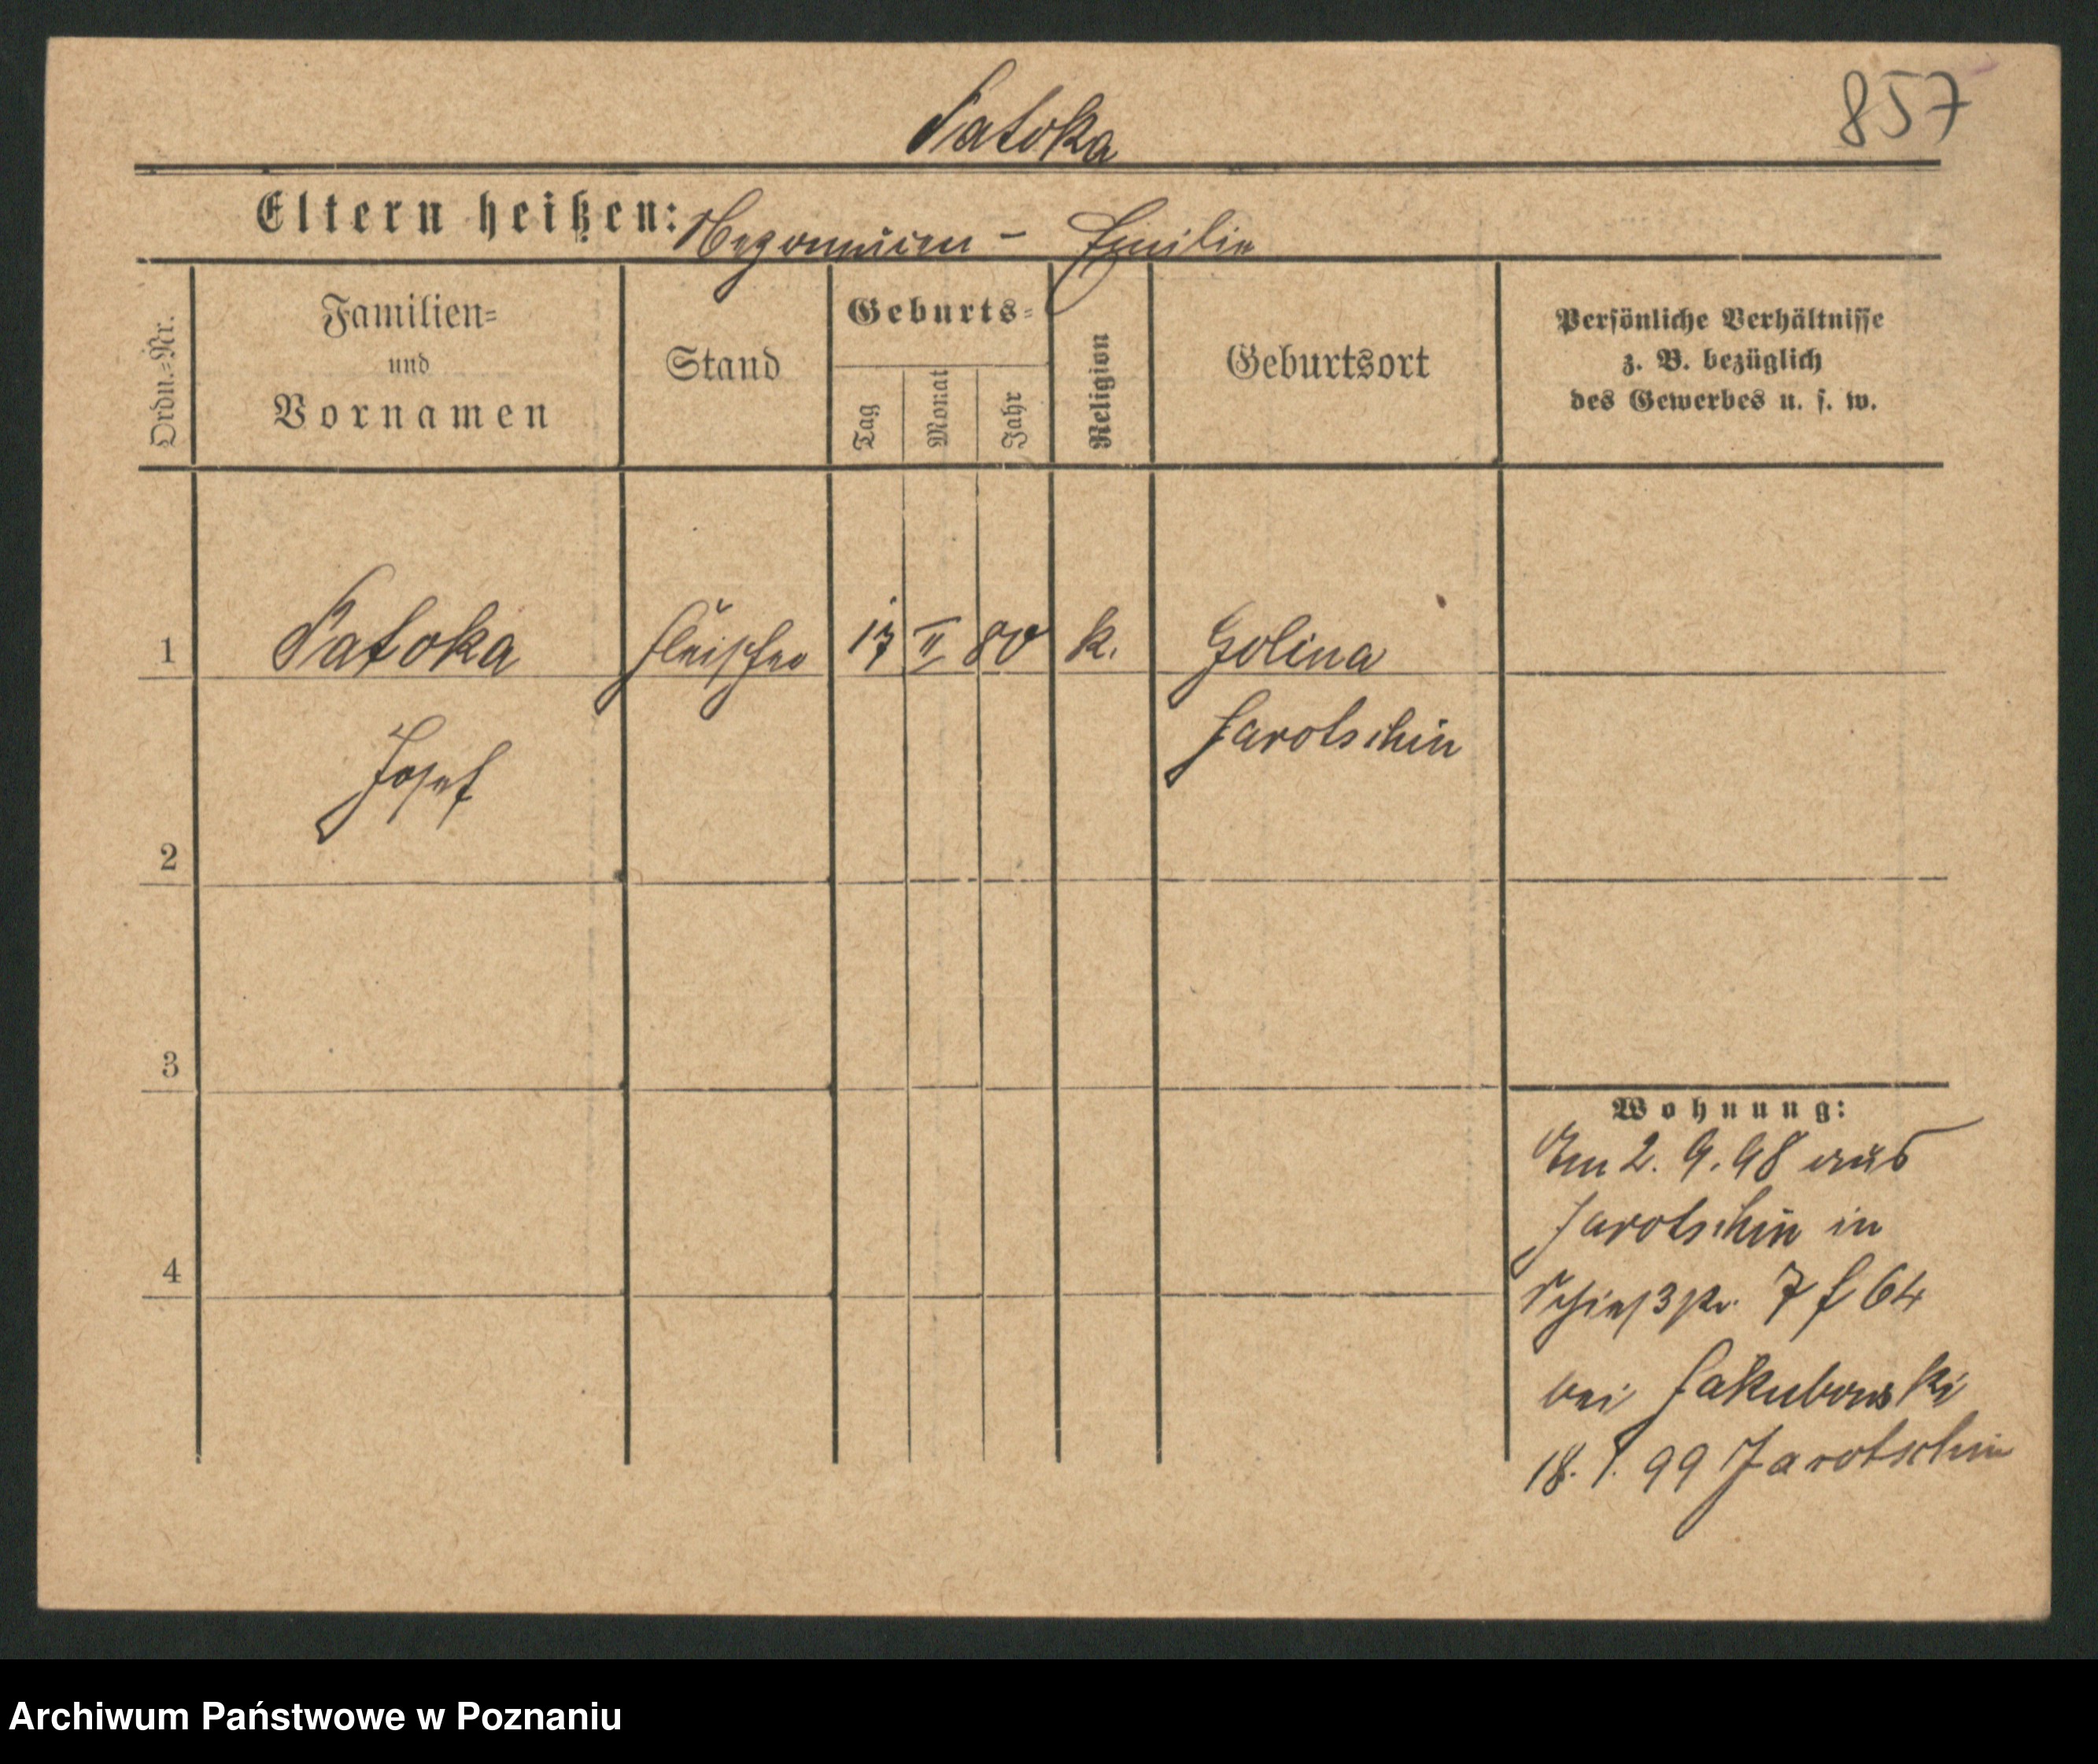 Satoka
857
Eltern heißen: Nepomucen - Emilie
Ordn.-Nr.
Familien-
und
Vornamen
Stand
Geburts-
Tag
Monat
Jahr
Religion
Geburtsort
Persönliche Verhältnisse
z. B. bezüglich
des Gewerbes u. s. w.
1 Satoka Fleischer 17 II 80 k. Golina
Jarotschin
Josef
2
3
Wohnung:
Am 2. 9. 98 aus
Jarotschin in
4
7 f 64
bei Jakubowski
18. 1. 99 Jarotschin
Archiwum Państwowe w Poznaniu